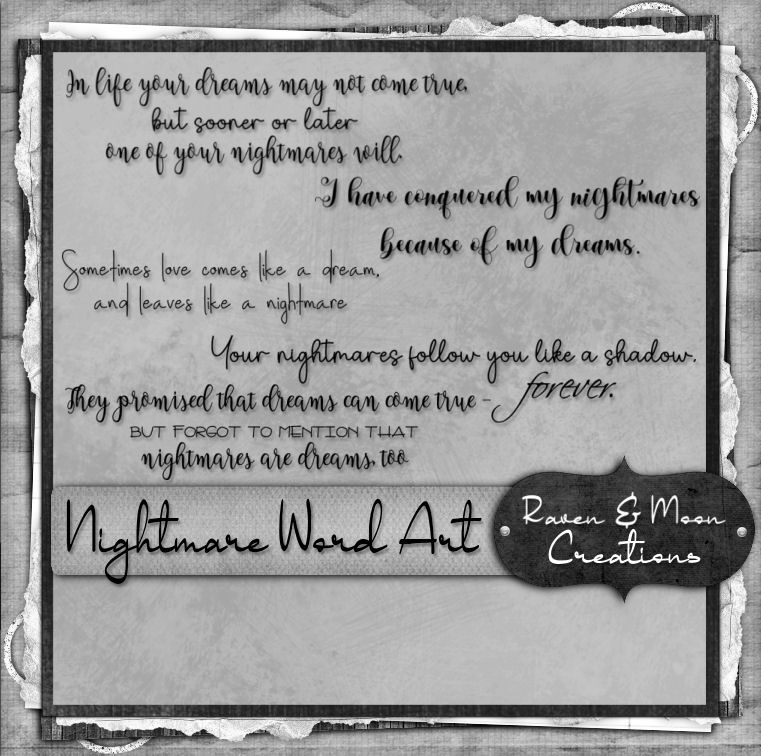 In life your dreams may not come true,
but sooner or later
one of your nightmares will.
I have conquered my nightmares
because of my dreams.
Sometimes love comes like a dream,
and leaves like a nightmare
Your nightmares follow you like a shadow,
forever.
They promised that dreams can come true -
BUT FORGOT TO MENTION THAT
nightmares are dreams, too
Nightmare Word Art
Raven & Moon
Creations